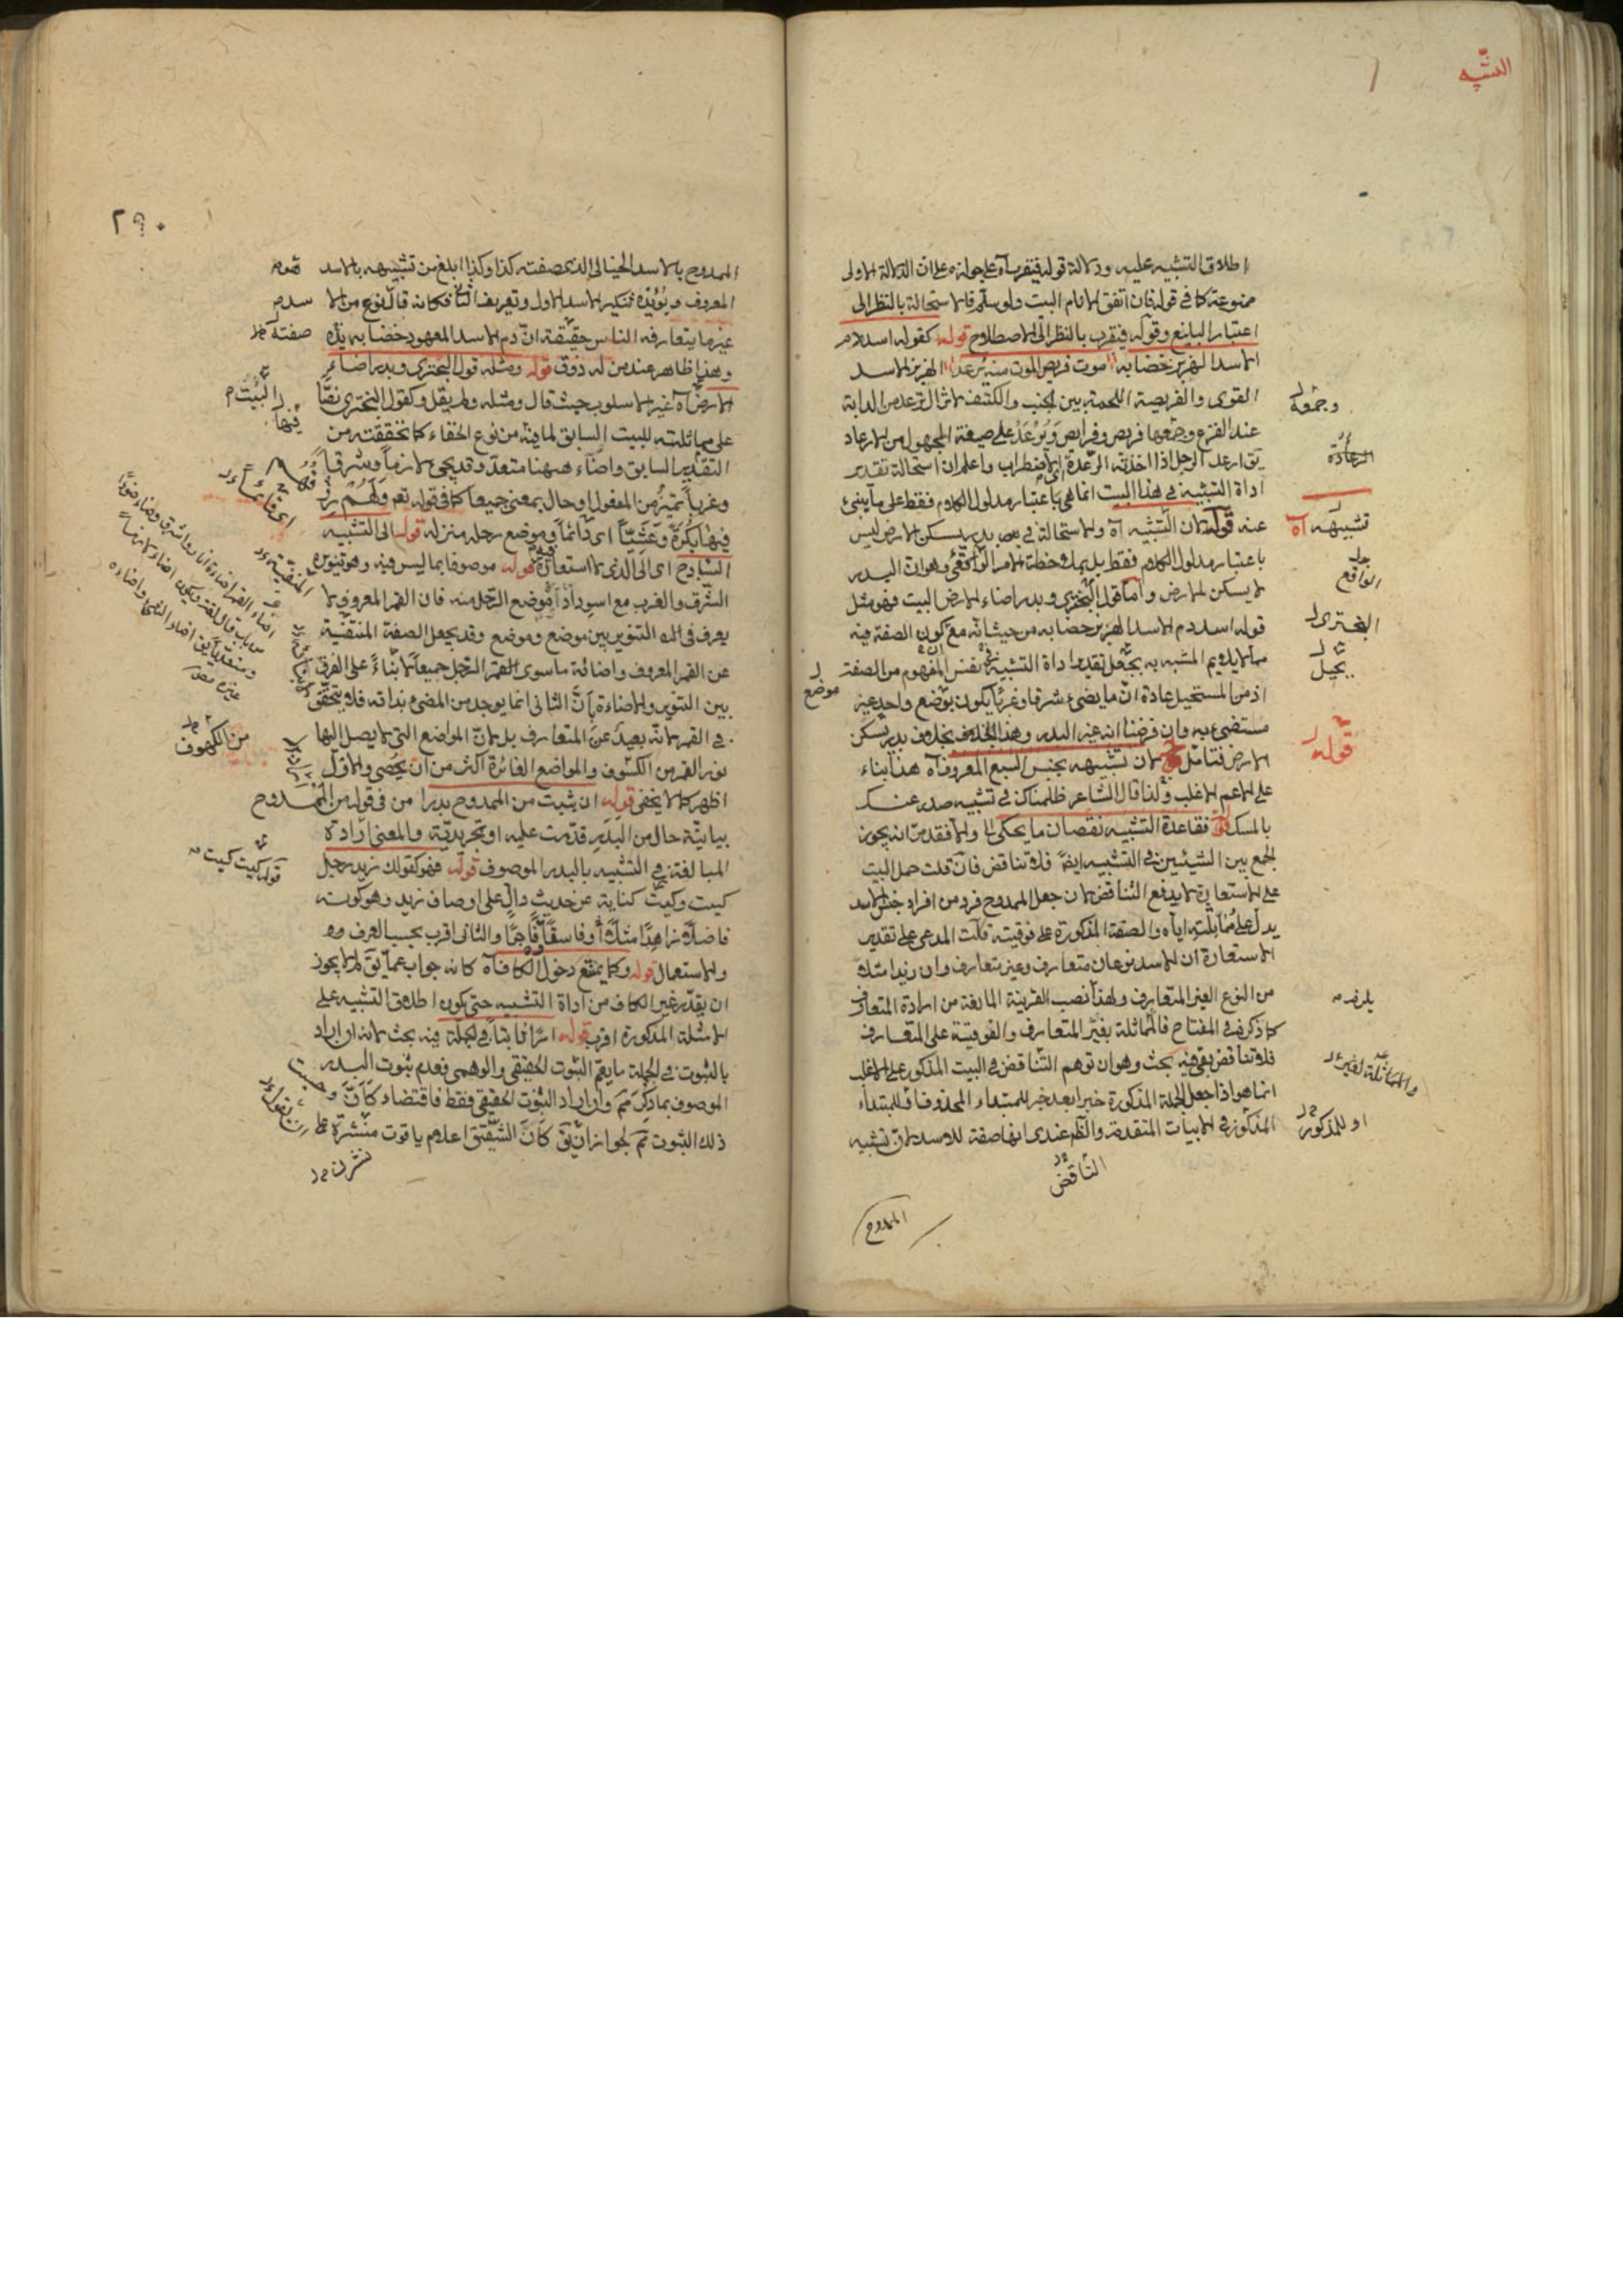 التشبيه
اطلاق التشبيه عليه ودلالة قوله فيقرب آه على جوازه على ان الدلالة الاولى
ممنوعة كما في قوله فان اتفق الانام البيت ولو سلم فالاستحالة بالنظر الى
اعتبار البليغ وقوله فيقرب بالنظر الى الاصطلاح قوله كقوله اسد دم
الاسد الهزبر خضابه موت فريص الموت منه يرعد الهزبر الاسد
القوى والفريصة اللحمة بين الجنب والكتف لا تزال ترعد من الدابة
عند الفزع وجمعها فريص وفرايص ويرعد على صيغة المجهول من الارعاد
يق ارعد الرجل اذا اخذته الرعدة اى الاضطراب واعلم ان استحالة تقدير
اداة التشبيه في هذا البيت انما هي باعتبار مدلول الكلام فقط على ما ينبئ
عنه قوله لان التشبيه آه والاستحالة في بدر يسكن الارض ليس
باعتبار مدلول الكلام فقط بل بملاحظة الامر الواقعى وهو ان البدر
لا يسكن الارض واما قول البحترى وبدر اضاء الارض البيت فهو مثل
قوله اسد دم الاسد الهزبر خضابه من حيث انه مع كون الصفة فيه
مما لا يلايم المشبه به يجعل تقدير اداة التشبيه نفس المفهوم من الصفة
اذ من المستحيل عادة ان ما يضىء شرقا وغربا يكون بوضع واحد غير
مستضىء به وان فرضنا انه غير البدر وهذا بخلاف بدر يسكن
الارض فتامل لان تشبيهه بجنس السبع المعروف آه هذا بناء
على الاعم الاغلب ولذا قال الشاعر ظلمناك في تشبيه صدغيك
بالمسك فقاعدة التشبيه نقصان ما يحكى والا فقد مر انه يجوز
الجمع بين الشيئين في التشبيه ايضا فلا تناقض فان قلت حمل البيت
على الاستعارة لا يدفع التناقض لان جعل الممدوح فرد من افراد جنس الاسد
يدل على مماثلته اياه والصفة المذكورة على فوقيته قلت المدعى على تقدير
الاستعارة ان الاسد نوعان متعارف وغير متعارف وان زيدا مثلا
من النوع الغير المتعارف ولهذا نصب القرينة المانعة من ارادة المتعارف
كما ذكر في المفتاح فالمماثلة بغير المتعارف والفوقية على المتعارف
فلا تناقض بقى فيه بحث وهو ان توهم التناقض في البيت المذكور على الاغلب
انما هو اذا جعل الجملة المذكورة خبرا بعد خبر للمبتداء المحذوف او للمبتداء
المذكور في الابيات المتقدمة والظ عندى انها صفة للاسد لان تشبيه
وجمعه
الرعادة
تشبيهه آه
الواقع
البحترى
يجعل
موضع
قوله
والمماثلة لغير
او للمذكور
التناقض
الممدوح
٢٩٠
الممدوح بالاسد الخيالى الذى صفته كذا وكذا ابلغ من تشبيهه بالاسد
المعروف ويؤيده تنكير الاسد الاول وتعريف الثانى فكانه قال نوع من الا
غير ما يتعارفه الناس حقيقة ان دم الاسد المعهود خضاب يده
وهذا ظاهر عند من له ذوق قوله ومثله قول البحترى وبدر اضاء
الارض آه غير الاسلوب حيث قال ومثله ولم يقل وكقول البحترى نصا
على مماثلته للبيت السابق لما فيه من نوع الخفاء كما تحققته من
التقدير السابق واضاء ههنا متعد وقد يجىء لازما وشرقا
وغربا تميز من المفعول او حال بمعنى جميعا كما في قوله تعم ولهم رزقهم
فيها بكرة وعشيا اى دائما وموضع رحله منزله قوله الى التشبيه
الساذج اى الى الذى لا استعارة قوله موصوفا بما ليس فيه وهو تنويره
الشرق والغرب مع اسوداد موضع الرحل منه فان القمر المعروف لا
يعرف في اله التنوير بين موضع وموضع وقد يجعل الصفة المنتفية
عن القمر المعروف واضائة ما سوى القمر الرحل جميعا لا بناء على الفرق
بين التنوير والاضاءة بان الثانى انما يوجد من المضىء بذاته فلا يتحقق
في القمر لانه بعيد عن المتعارف بل لان المواضع التي لا يصل اليها
نور القمر من الكشوف والمواضع الغائرة اكثر من ان يحصى والاول
اظهر كما لا يخفى قوله ان يثبت من الممدوح بدرا من في قوله من الممدوح
بيانية حال من البدر قدمت عليه او تجريدية والمعنى ارادة
المبالغة في التشبيه بالبدر الموصوف قوله فهو كقولك زيد رجل
كيت وكيت كناية عن حديث دال على اوصاف زيد وهو كونه
فاضلا زاهدا مثلا او فاسقا فاجرا والثانى اقرب بحسب العرف
والاستعمال قوله وكما يمتنع دخول الكاف آه كانه جواب عما يق لم لا يجوز
ان يقدر غير الكاف من اداة التشبيه حتى يكون اطلاق التشبيه على
الامثلة المذكورة اقرب قوله امرا ثابتا في الجملة فيه بحث لانه ان اراد
بالثبوت في الجملة ما يعم الثبوت الحقيقى والوهمى فعدم ثبوت البدر
الموصوف بما ذكر مم وان اراد الثبوت الحقيقى فقط فاقتضاء كان وحسبت
ذلك الثبوت مم لجواز ان يق كان الشقيق اعلام ياقوت منشرة
سد
صفته
البيت
فيها
المنفية
من الكهوف
قوله كيت كيت
نشرن